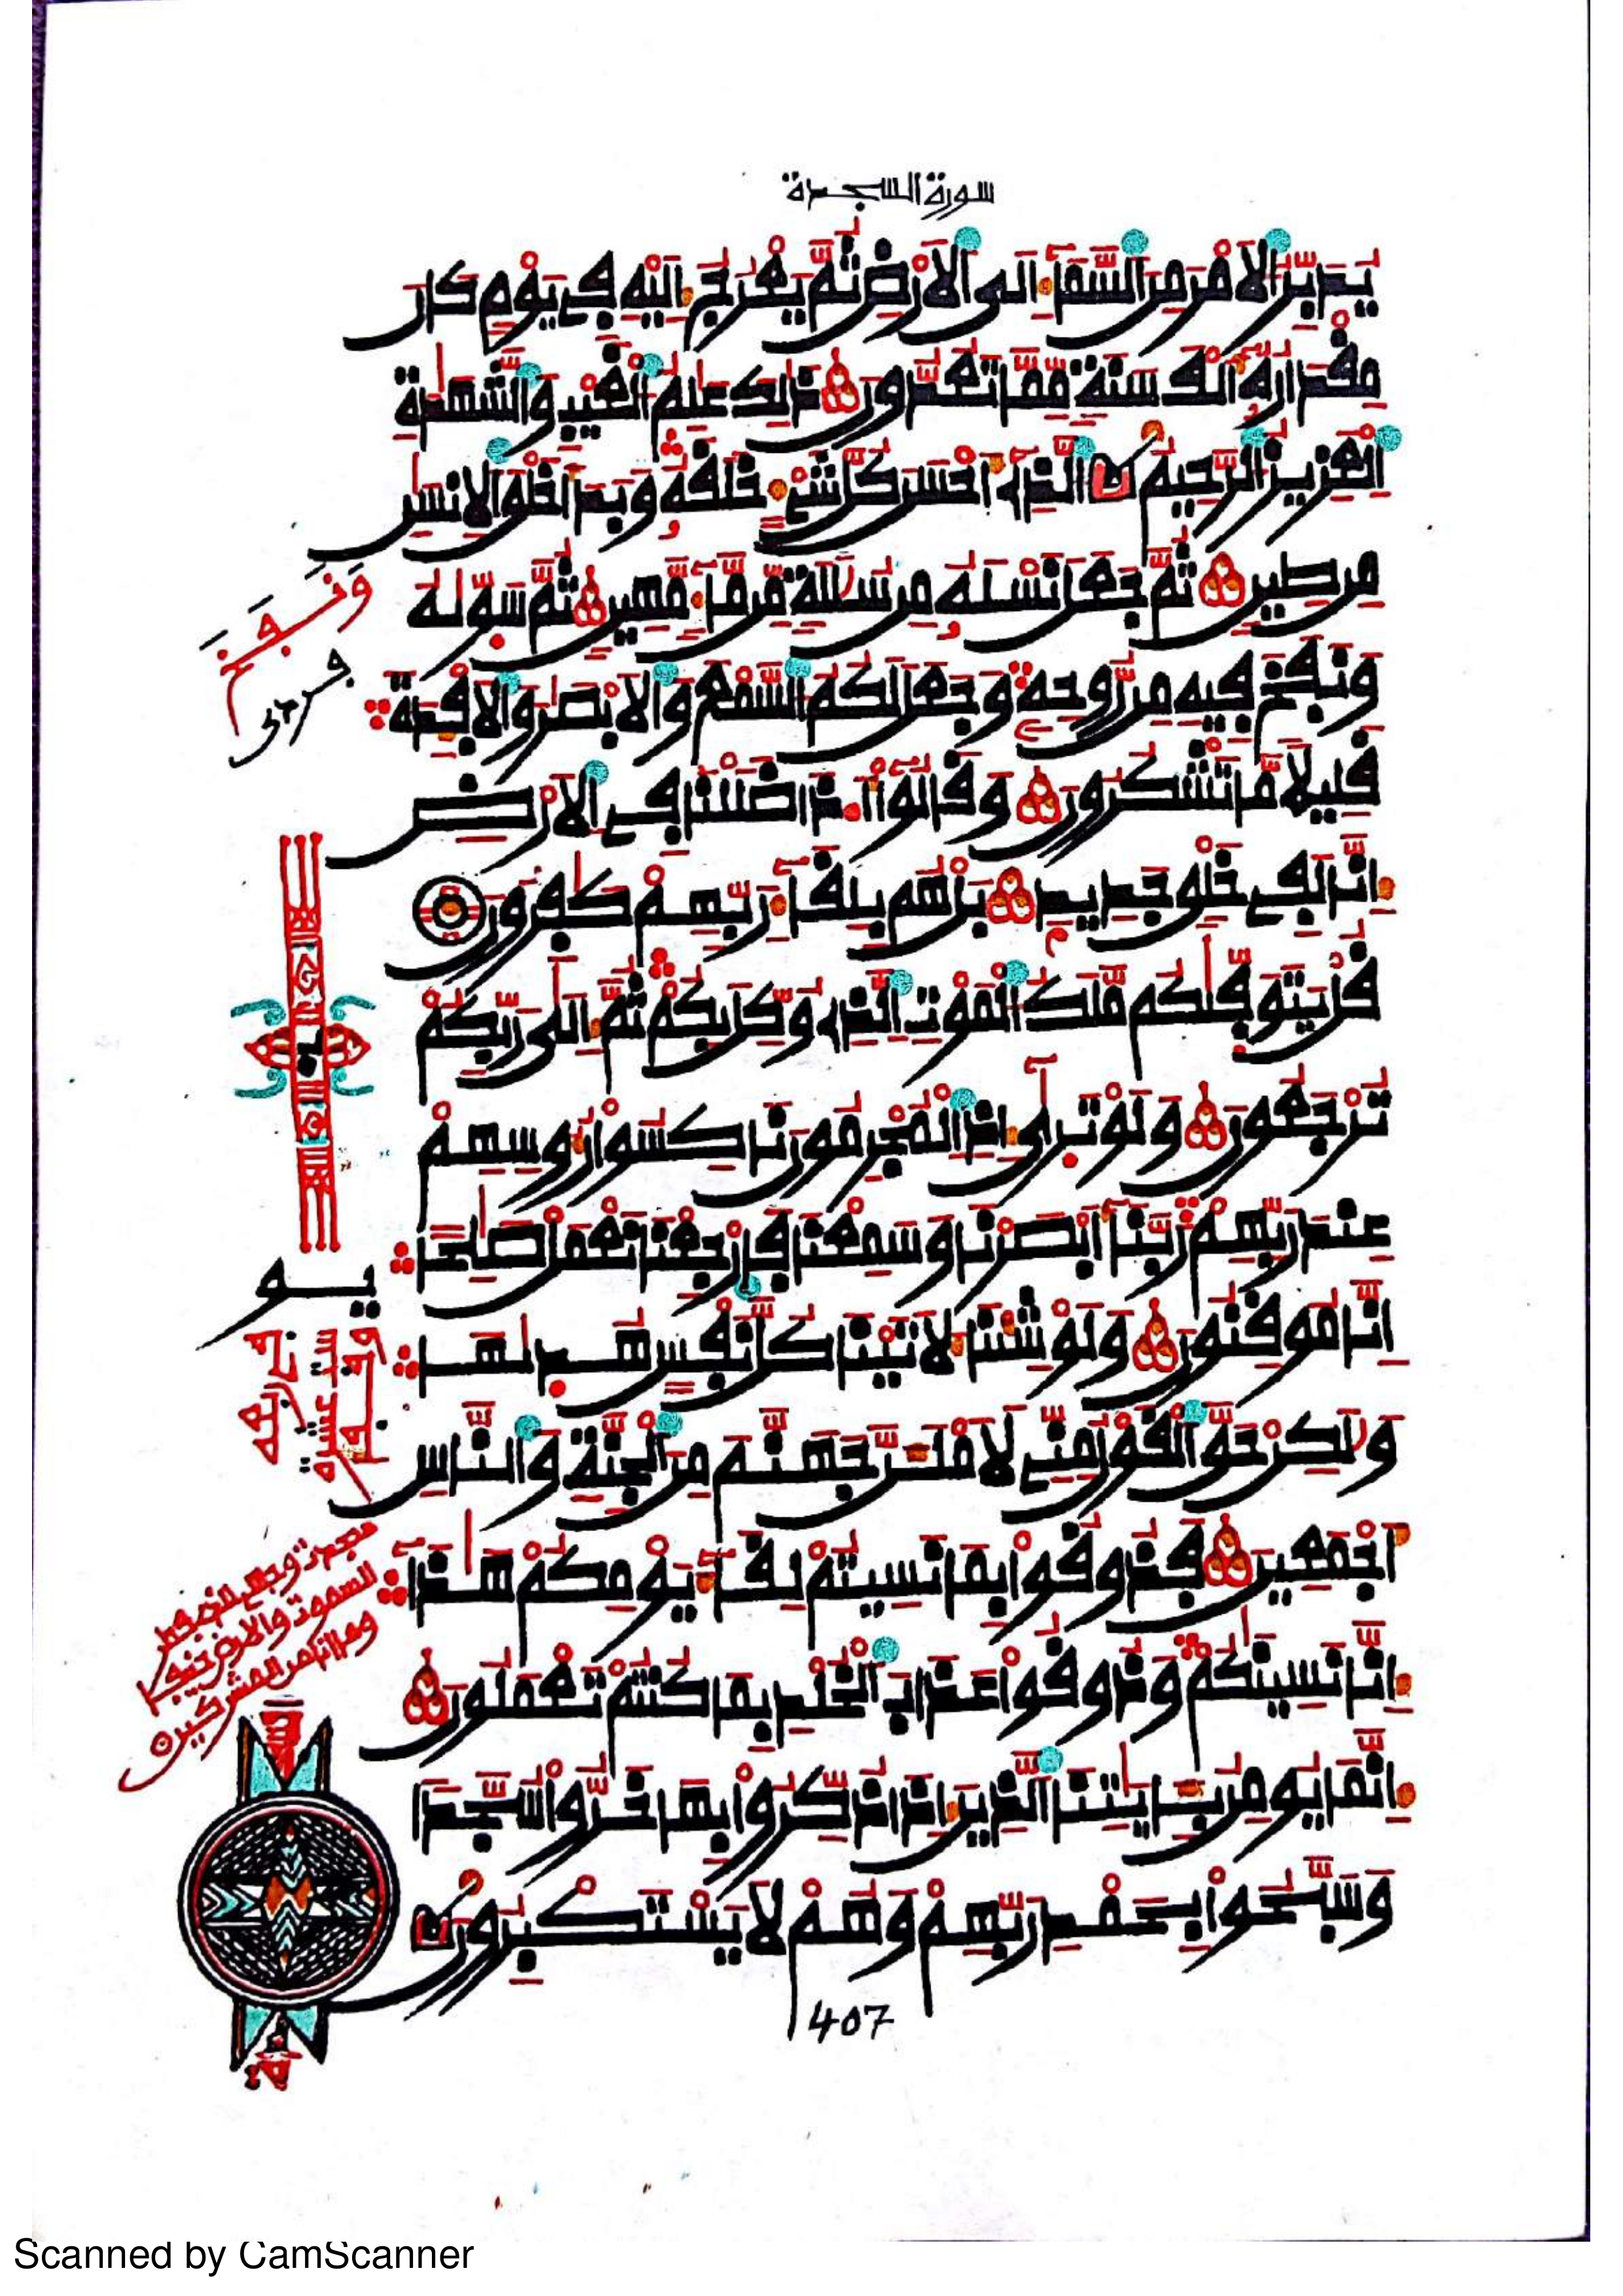 سورة السجدة
يُدَبِّرُ الْاَمْرَ مِنَ السَّمَآءِ اِلَى الْاَرْضِ ثُمَّ يَعْرُجُ اِلَيْهِ فِى يَوْمٍ كَانَ
مِقْدَارُهُ اَلْفَ سَنَةٍ مِّمَّا تَعُدُّونَ ذٰلِكَ عٰلِمُ الْغَيْبِ وَالشَّهٰدَةِ
الْعَزِيزُ الرَّحِيمُ الَّذِى اَحْسَنَ كُلَّ شَىْءٍ خَلَقَهُ وَبَدَاَ خَلْقَ الْاِنسٰنِ
مِن طِينٍ ثُمَّ جَعَلَ نَسْلَهُ مِن سُلٰلَةٍ مِّن مَّآءٍ مَّهِينٍ ثُمَّ سَوّٰىهُ
وَنَفَخَ فِيهِ مِن رُّوحِهِ وَجَعَلَ لَكُمُ السَّمْعَ وَالْاَبْصٰرَ وَالْاَفْـِٔدَةَ
قَلِيلًا مَّا تَشْكُرُونَ وَقَالُوٓا اَ۟ذَا ضَلَلْنَا فِى الْاَرْضِ
اِنَّا لَفِى خَلْقٍ جَدِيدٍ بَلْ هُم بِلِقَآءِ رَبِّهِمْ كٰفِرُونَ
قُلْ يَتَوَفّٰىكُم مَّلَكُ الْمَوْتِ الَّذِى وُكِّلَ بِكُمْ ثُمَّ اِلَى رَبِّكُمْ
تُرْجَعُونَ وَلَوْ تَرَىٰٓ اِذِ الْمُجْرِمُونَ نَاكِسُوا رُءُوسِهِمْ
عِندَ رَبِّهِمْ رَبَّنَآ اَبْصَرْنَا وَسَمِعْنَا فَارْجِعْنَا نَعْمَلْ صٰلِحًا
اِنَّا مُوقِنُونَ وَلَوْ شِئْنَا لَاٰتَيْنَا كُلَّ نَفْسٍ هُدٰىهَا
وَلٰكِنْ حَقَّ الْقَوْلُ مِنِّى لَاَمْلَـَٔنَّ جَهَنَّمَ مِنَ الْجِنَّةِ وَالنَّاسِ
اَجْمَعِينَ فَذُوقُوا بِمَا نَسِيتُمْ لِقَآءَ يَوْمِكُمْ هٰذَآ
اِنَّا نَسِينٰكُمْ وَذُوقُوا عَذَابَ الْخُلْدِ بِمَا كُنتُمْ تَعْمَلُونَ
اِنَّمَا يُومِنُ بِـَٔايٰتِنَا الَّذِينَ اِذَا ذُكِّرُوا بِهَا خَرُّوا سُجَّدًا
وَسَبَّحُوا بِحَمْدِ رَبِّهِمْ وَهُمْ لَا يَسْتَكْبِرُونَ
407
وَنَفَخَ
Scanned by CamScanner